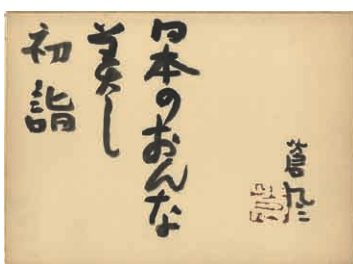 日本のおんな
美し
初詣